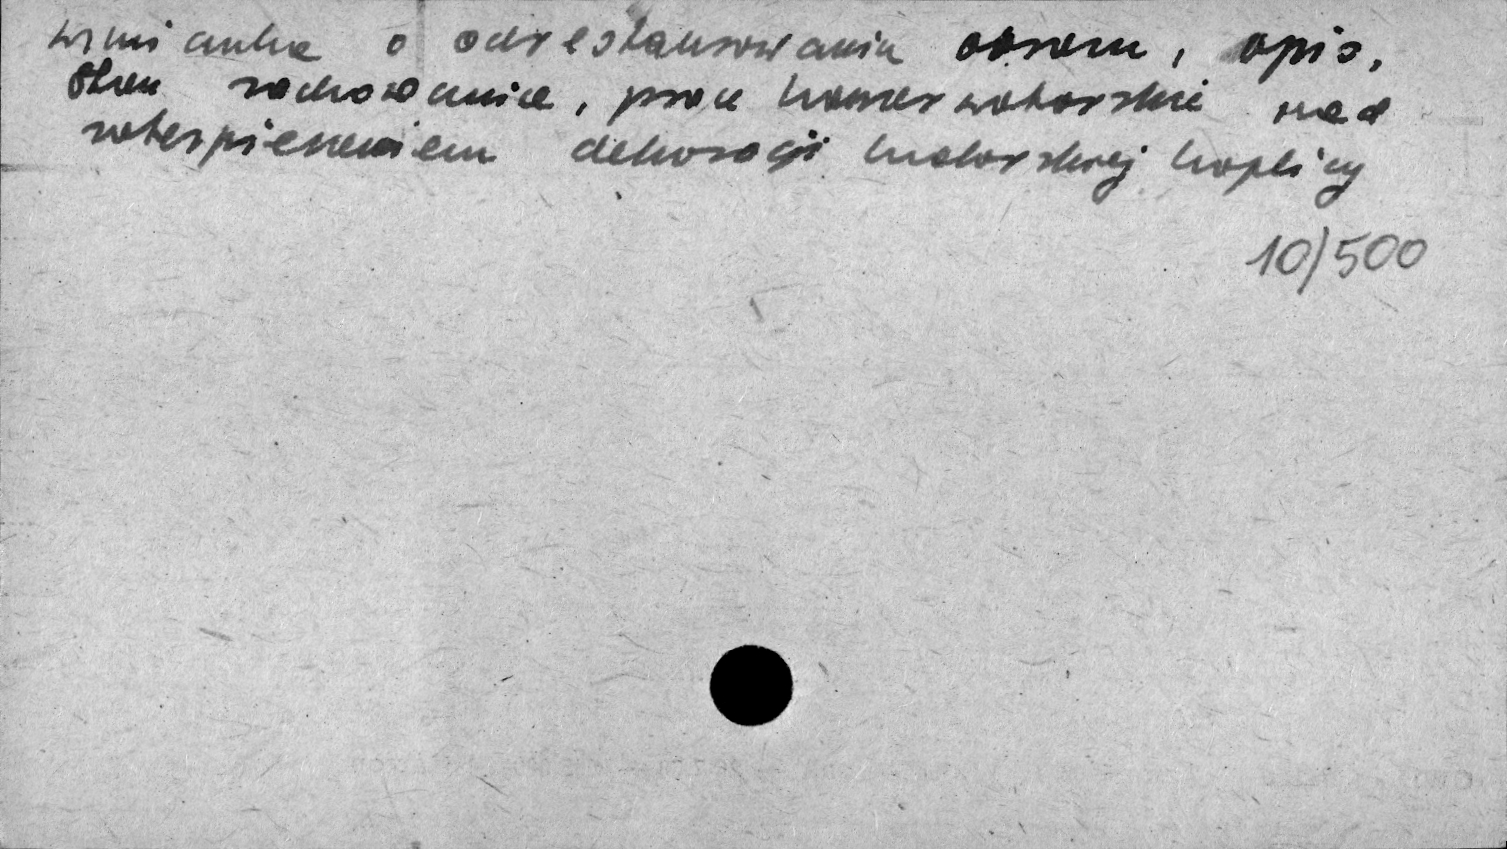 wzmianka o odrestaurowaniu obrazu, opis,
stan zachowania, prace konserwatorskie nad
zabezpieczeniem dekoracji malarskiej kaplicy
10/500